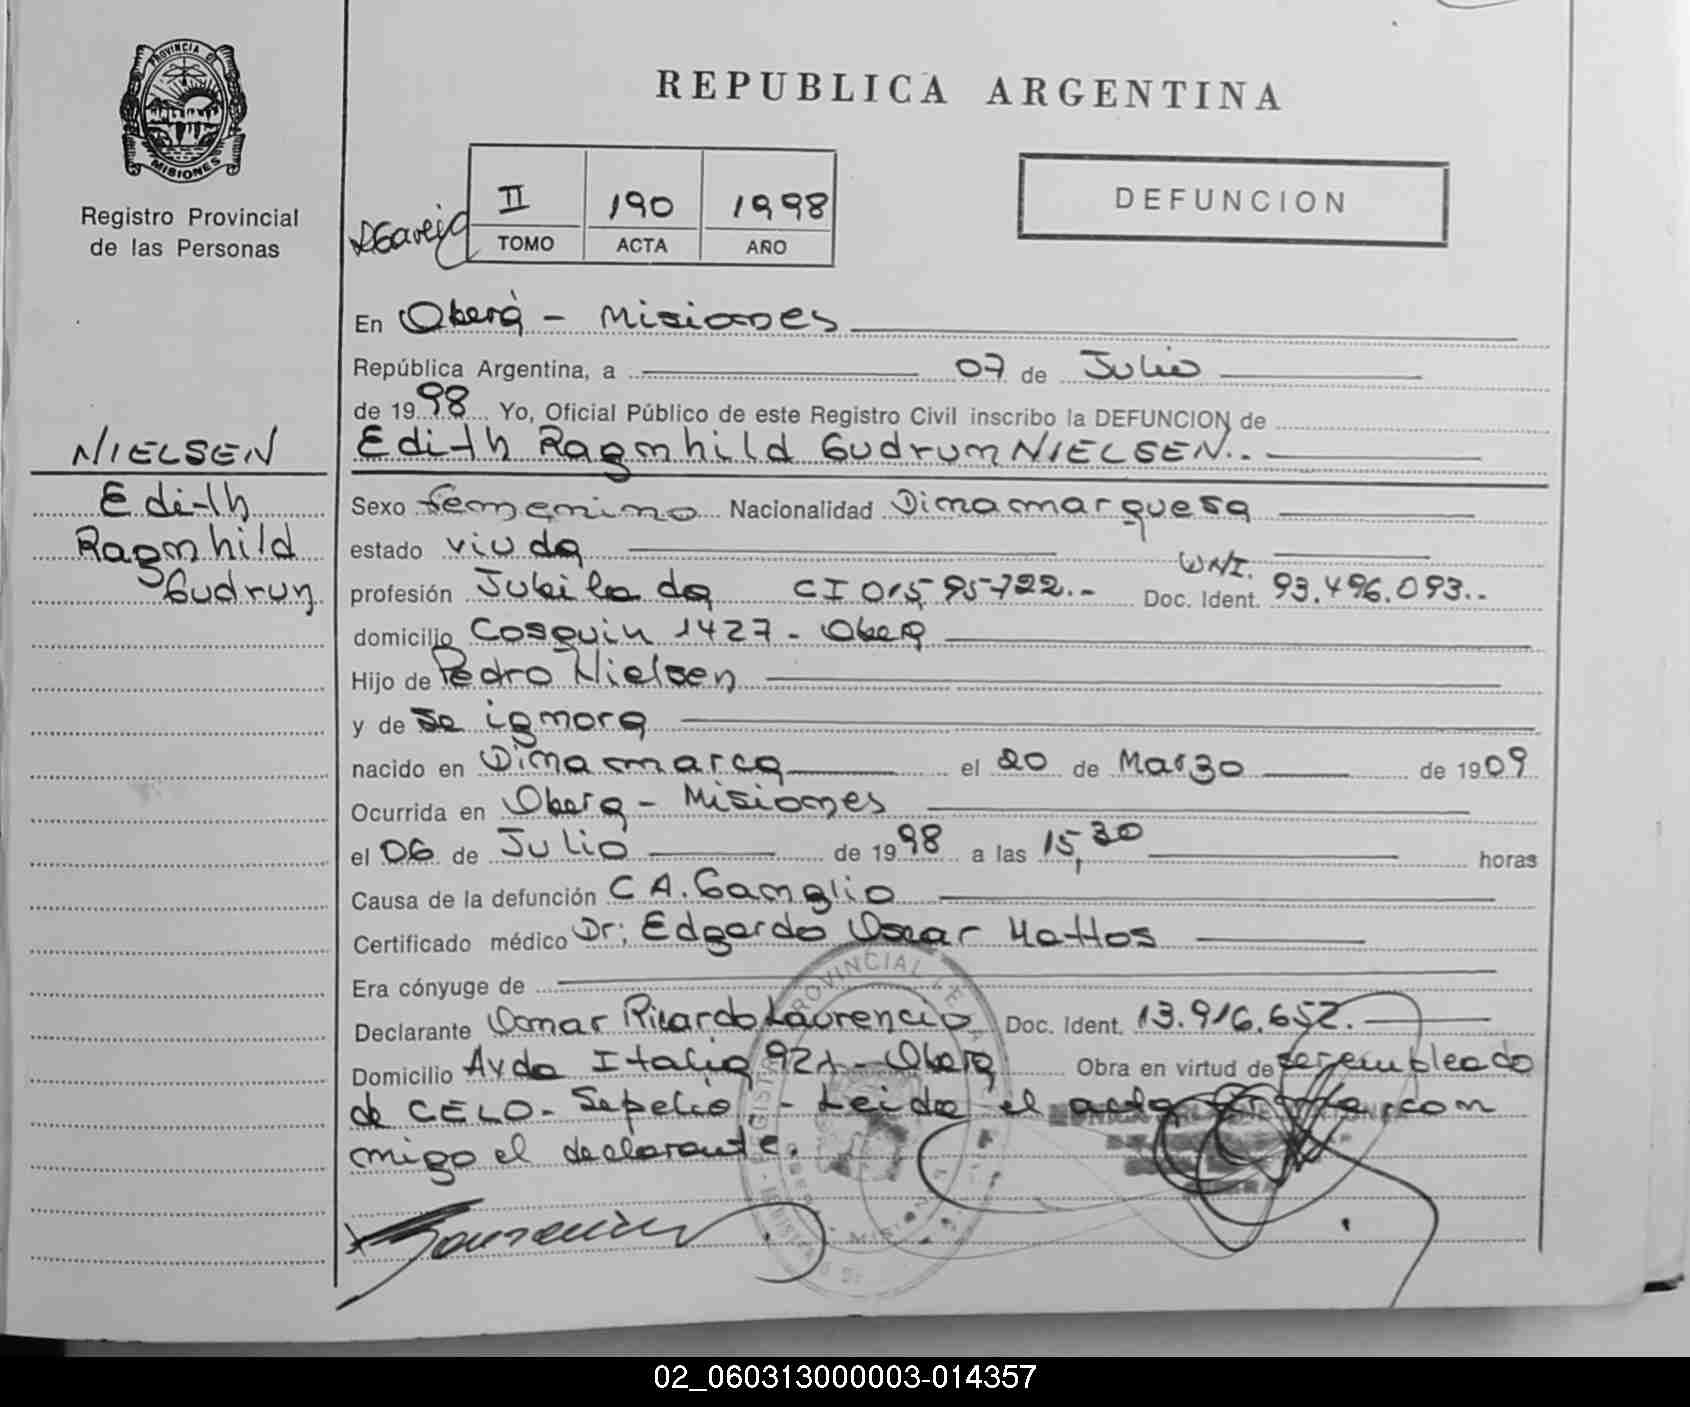 PROVINCIA DE
MISIONES
Registro Provincial
de las Personas
REPUBLICA ARGENTINA
II 190 1998
TOMO ACTA AÑO
DEFUNCION
En Oberá - Misiones
República Argentina, a 07 de Julio
de 1998 Yo, Oficial Público de este Registro Civil inscribo la DEFUNCION de
Edith Ragnhild Gudrun NIELSEN.-
NIELSEN
Edith
Ragnhild
Gudrun
Sexo femenino Nacionalidad Dinamarquesa
estado viuda
profesión Jubilada CI 01595722.- Doc. Ident. 93.496.093..
domicilio Cosquin 1427 - Obera
Hijo de Pedro Nielsen
y de se ignora
nacido en Dinamarca el 20 de Marzo de 1909
Ocurrida en Obera - Misiones
el 06 de Julio de 1998 a las 15,30 horas
Causa de la defunción CA. Ganglio
Certificado médico Dr; Edgardo Osnar Mattos
Era cónyuge de
Declarante Osmar Ricardo Laurencio Doc. Ident. 13.916.652.
Domicilio Avda Italia 921 - Obera Obra en virtud de ser empleado
de CELO - Sepelio. - Leida el acta firma con
migo el declarante.
02_060313000003-014357